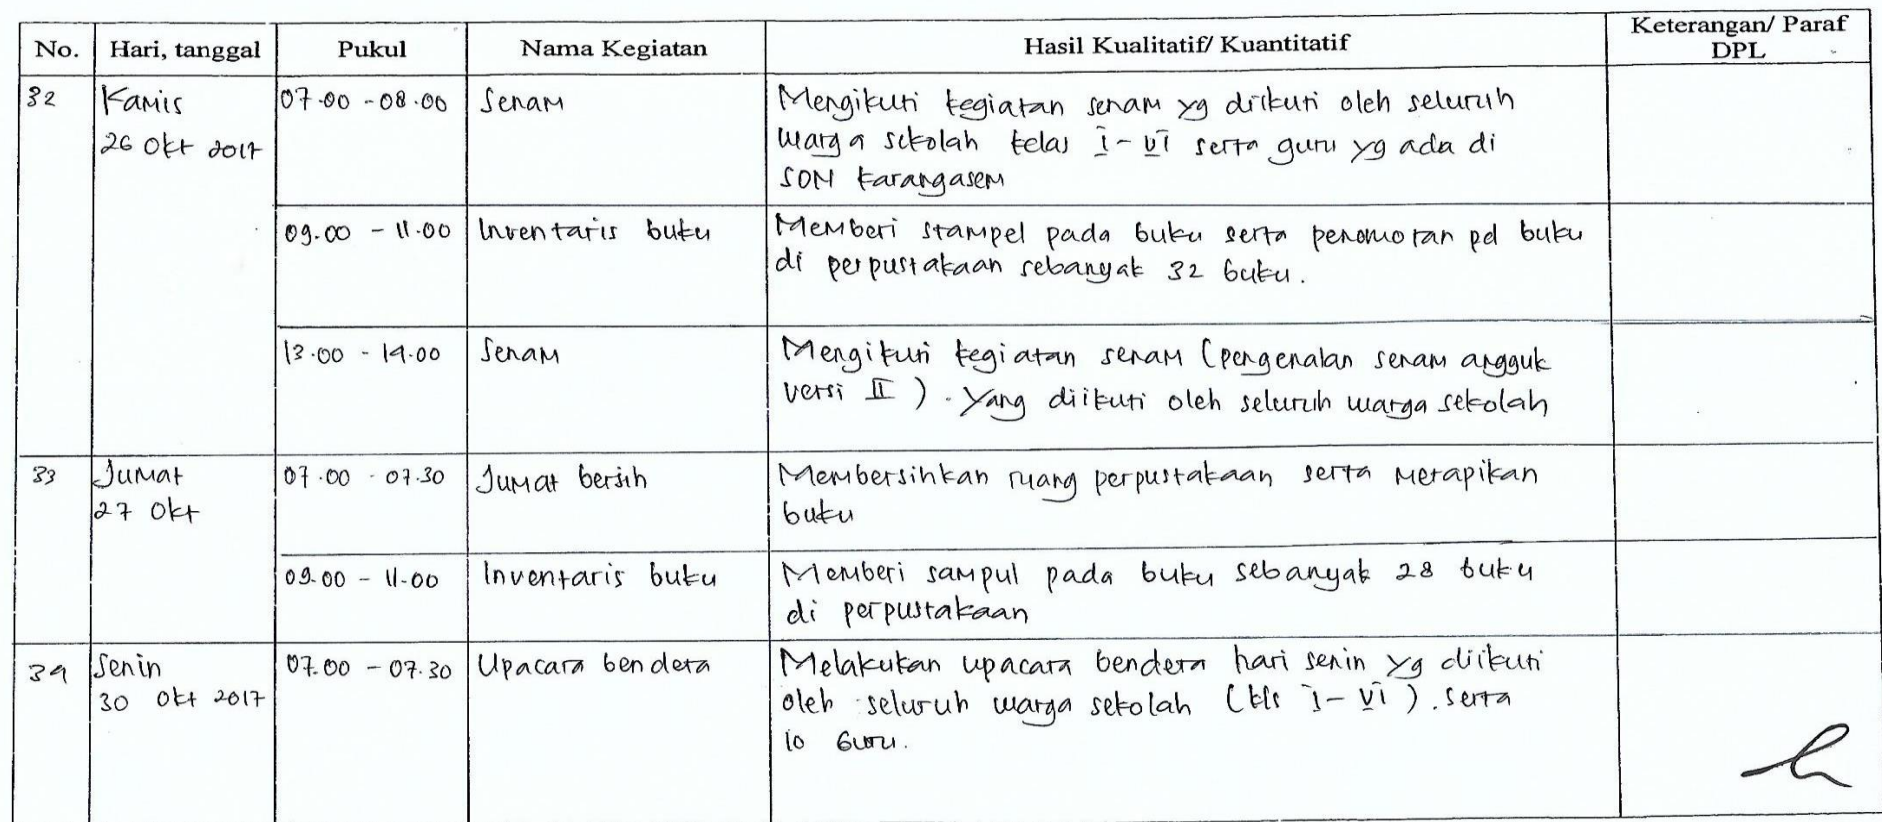 No. Hari, tanggal Pukul Nama Kegiatan Hasil Kualitatif/ Kuantitatif Keterangan/ Paraf
DPL
32 Kamis 07.00 - 08.00 Senam Mengikuti kegiatan senam yg diikuti oleh seluruh
26 Okt 2017 warga sekolah kelas I - VI serta guru yg ada di
SDN Karangasem
09.00 - 11.00 Inventaris buku Memberi stampel pada buku serta penomoran pd buku
di perpustakaan sebanyak 32 buku.
13.00 - 14.00 Senam Mengikuti kegiatan senam (pengenalan senam angguk
versi II ). Yang diikuti oleh seluruh warga sekolah
33 Jumat 07.00 - 07.30 Jumat bersih Membersihkan ruang perpustakaan serta merapikan
27 Okt buku
09.00 - 11.00 Inventaris buku Memberi sampul pada buku sebanyak 28 buku
di perpustakaan
34 Senin 07.00 - 07.30 Upacara bendera Melakukan upacara bendera hari senin yg diikuti
30 Okt 2017 oleh seluruh warga sekolah (kls I - VI ). serta
10 Guru.